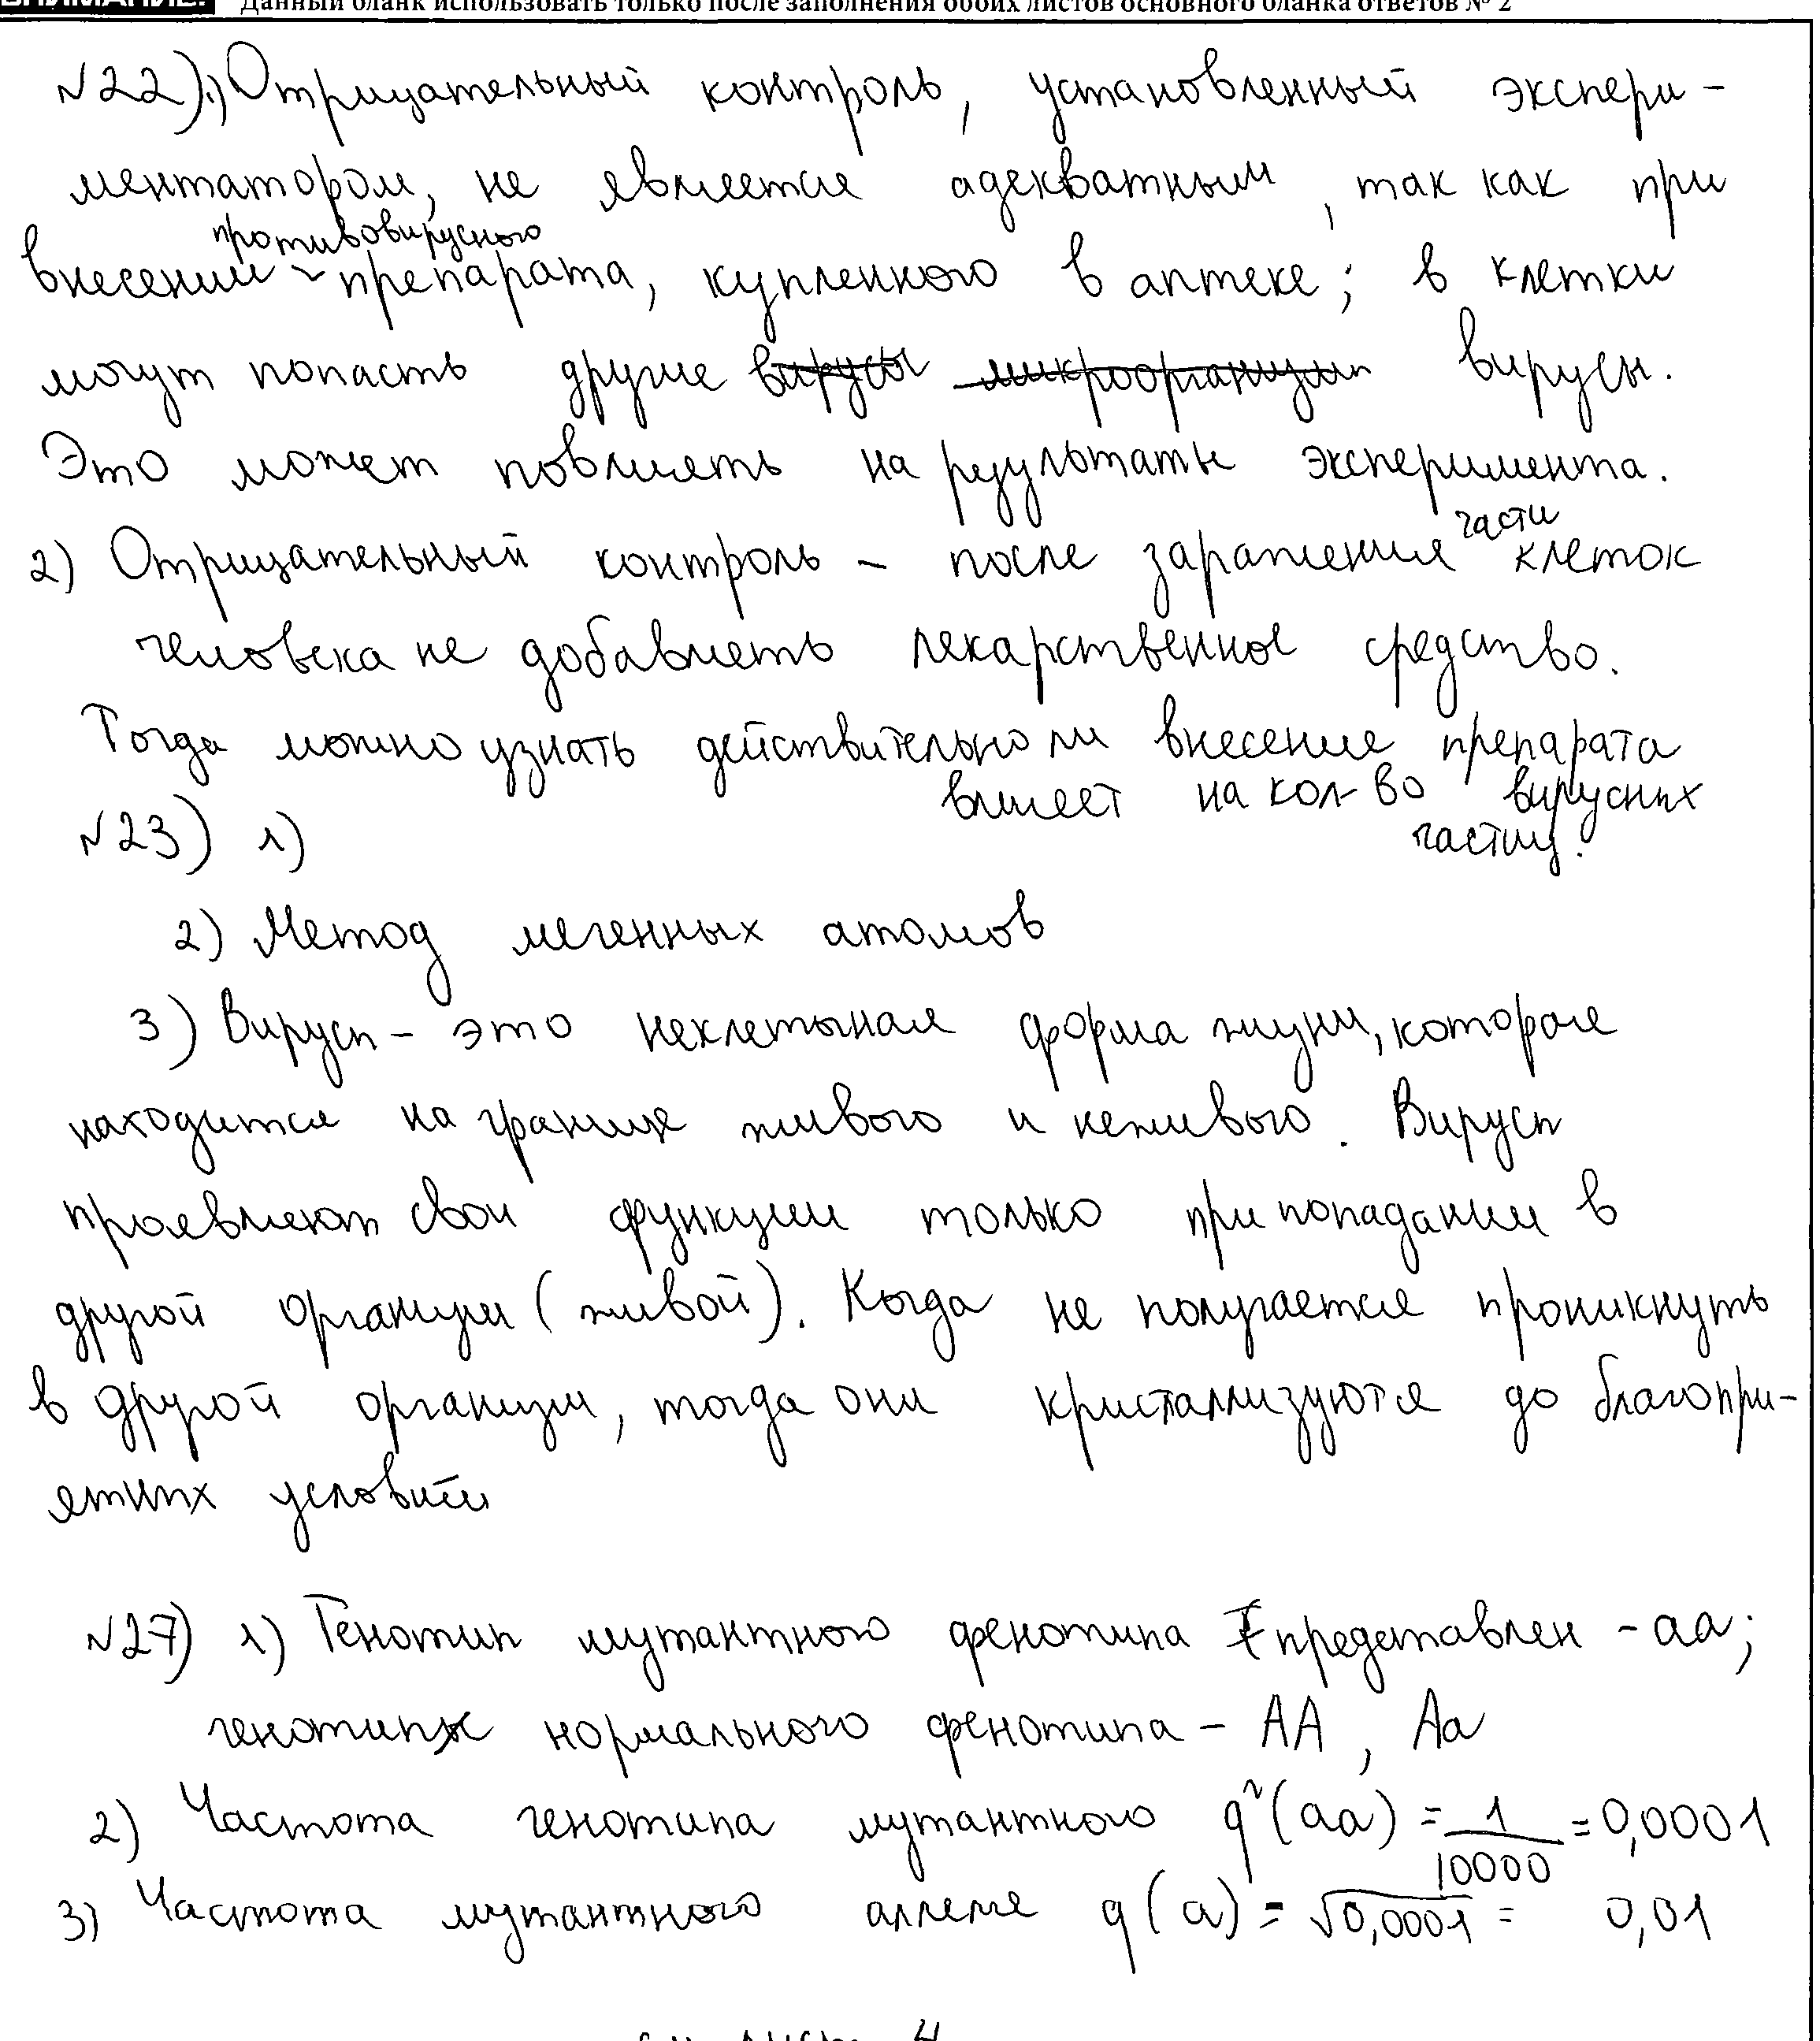 ВНИМАНИЕ! Данный бланк использовать только после заполнения обоих листов основного бланка ответов № 2
№22) 1) Отрицательный контроль, установленный экспери-
ментатором, не является адекватным, так как при
противовирусного
внесении препарата, купленного в аптеке; в клетки
могут попасть другие вирусы микроорганизмы вирусы.
Это может повлиять на результаты эксперимента.
части
2) Отрицательный контроль - после заражения клеток
человека не добавлять лекарственное средство.
Тогда можно узнать действительно ли внесение препарата
влияет на кол-во вирусных
частиц.
№23) 1)
2) Метод меченных атомов
3) Вирусы - это неклеточная форма жизни, которая
находится на границе живого и неживого. Вирусы
проявляют свои функции только при попадании в
другой организм (живой). Когда не получается проникнуть
в другой организм, тогда они кристаллизуются до благопри-
ятных условий
№27) 1) Генотип мутантного фенотипа представлен - aa;
генотипы нормального фенотипа - AA, Aa
2) Частота генотипа мутантного q²(aa) = 1/10000 = 0,0001
3) Частота мутантного аллеля q(a) = √0,0001 = 0,01